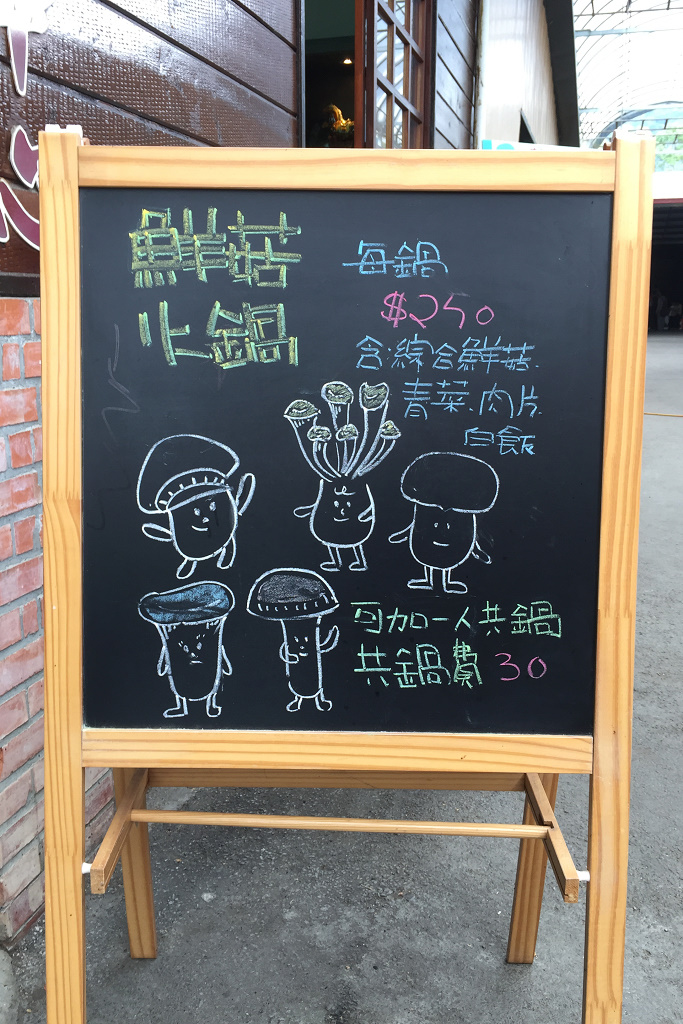 鮮菇
火鍋
每鍋
$250
含:綜合鮮菇、
青菜、肉片、
白飯
可加一人共鍋
共鍋費 30